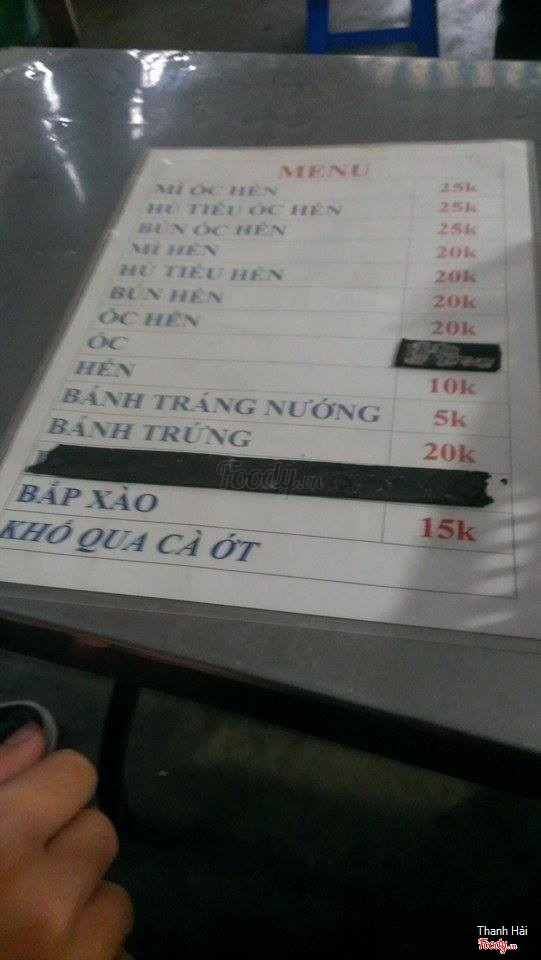 MENU
MÌ ỐC HẾN 25k
HỦ TIẾU ỐC HẾN 25k
BÚN ỐC HẾN 25k
MÌ HẾN 20k
HỦ TIẾU HẾN 20k
BÚN HẾN 20k
ỐC HẾN 20k
ỐC
HẾN 10k
BÁNH TRÁNG NƯỚNG 5k
BÁNH TRỨNG 20k
Foody.vn
BẮP XÀO 15k
KHỔ QUA CÀ ỚT
Thanh Hải
Foody.vn